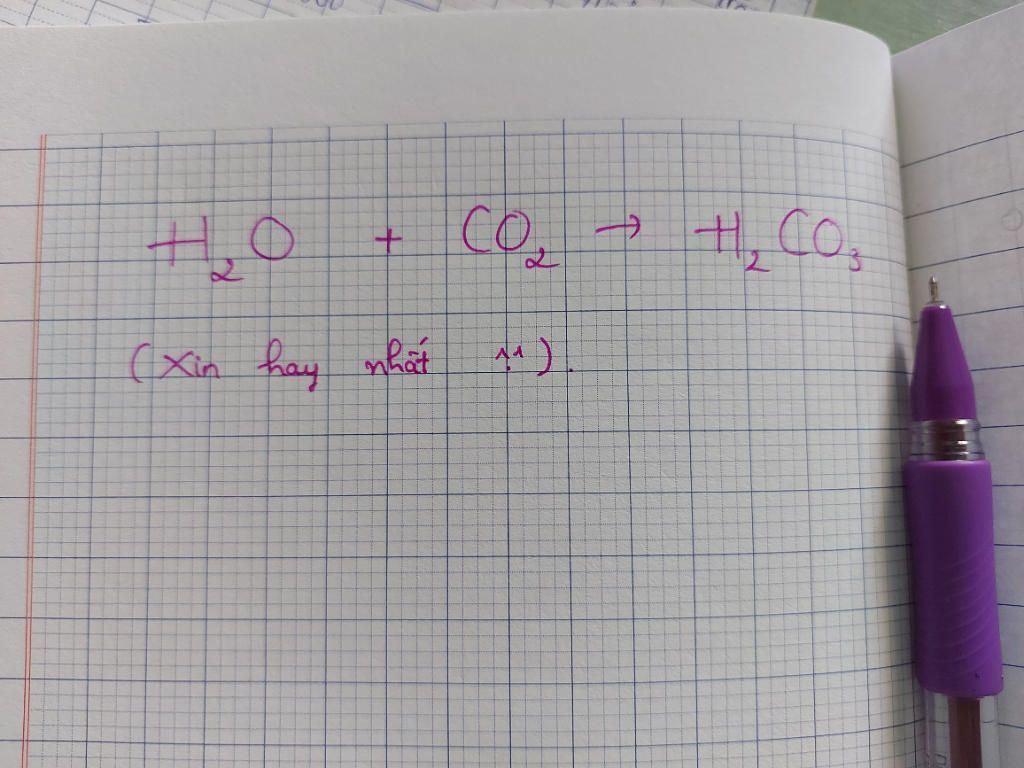 H₂O + CO₂ → H₂CO₃
(Xin hay nhất ^:^).